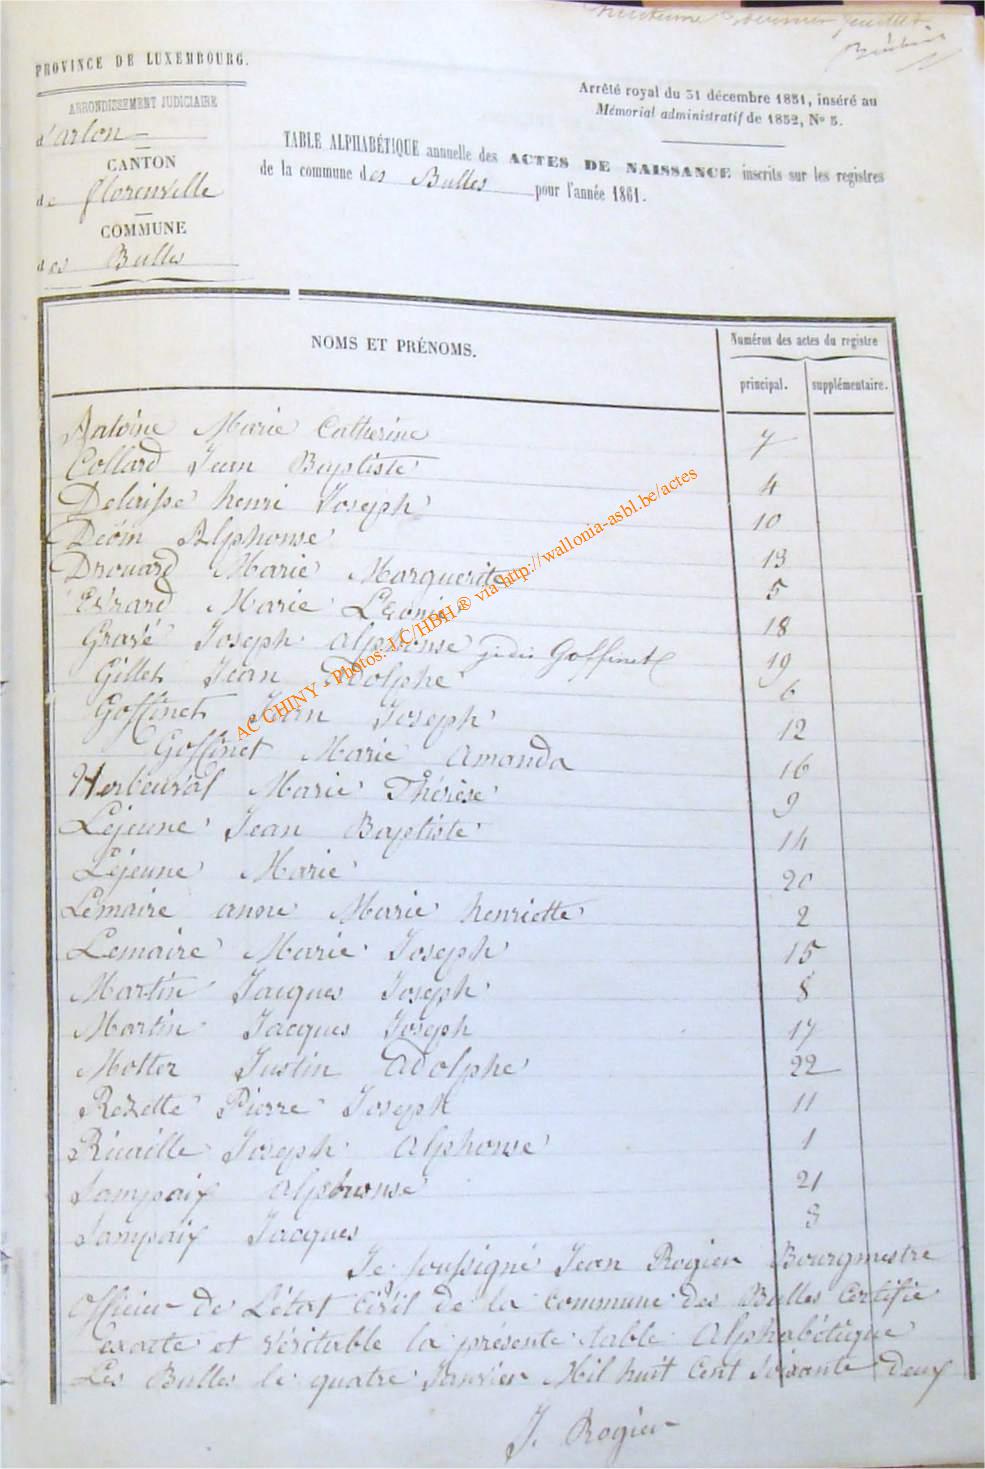 huitième et dernier feuillet
PROVINCE DE LUXEMBOURG.
ARRONDISSEMENT JUDICIAIRE
d'arlon
CANTON
de florenville
COMMUNE
des Bulles
Arrêté royal du 31 décembre 1831, inséré au
Mémorial administratif de 1832, No 5.
TABLE ALPHABÉTIQUE annuelle des ACTES DE NAISSANCE inscrits sur les registres
de la commune des Bulles pour l'année 1861.
NOMS ET PRÉNOMS.
Numéros des actes du registre
principal. supplémentaire.
Marie Catherine 7
Collard Jean Baptiste 4
henri Joseph 10
Déom Alphonse 13
Drouard Marie Marguerite 5
Evrard Marie Léonie 18
Gravé Joseph alphonse jadis Goffinet 19
Gillet Jean adolphe 6
Goffinet Jean Joseph 12
Goffinet Marie amanda 16
Herbeuval Marie Thérèse 9
Lejeune Jean Baptiste 14
Lejeune Marie 20
Lemaire anne Marie henriette 2
Lemaire Marie Joseph 15
Martin Jacques Joseph 8
Martin Jacques Joseph 17
Motter Justin adolphe 22
Rezette Pierre Joseph 11
Ricaille Joseph alphonse 1
Sampaix alphonse 21
Sampaix Jacques 3
Je soussigné Jean Rogier Bourgmestre
officier de l'état civil de la commune des Bulles certifie
exacte et véritable la présente table alphabétique
Les Bulles le quatre Janvier Mil huit Cent Soixante Deux
J. Rogier
AC CHINY - Photos: LC/HBH® via http://wallonia-asbl.be/actes